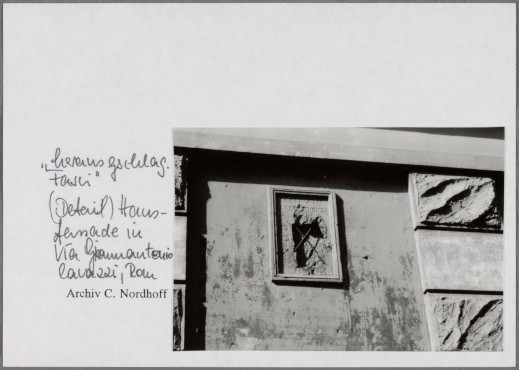 „herausgschlag.
Fasci"
(Detail) Haus-
fassade in
Via Giannantonio
Cavazzi, Rom
Archiv C. Nordhoff